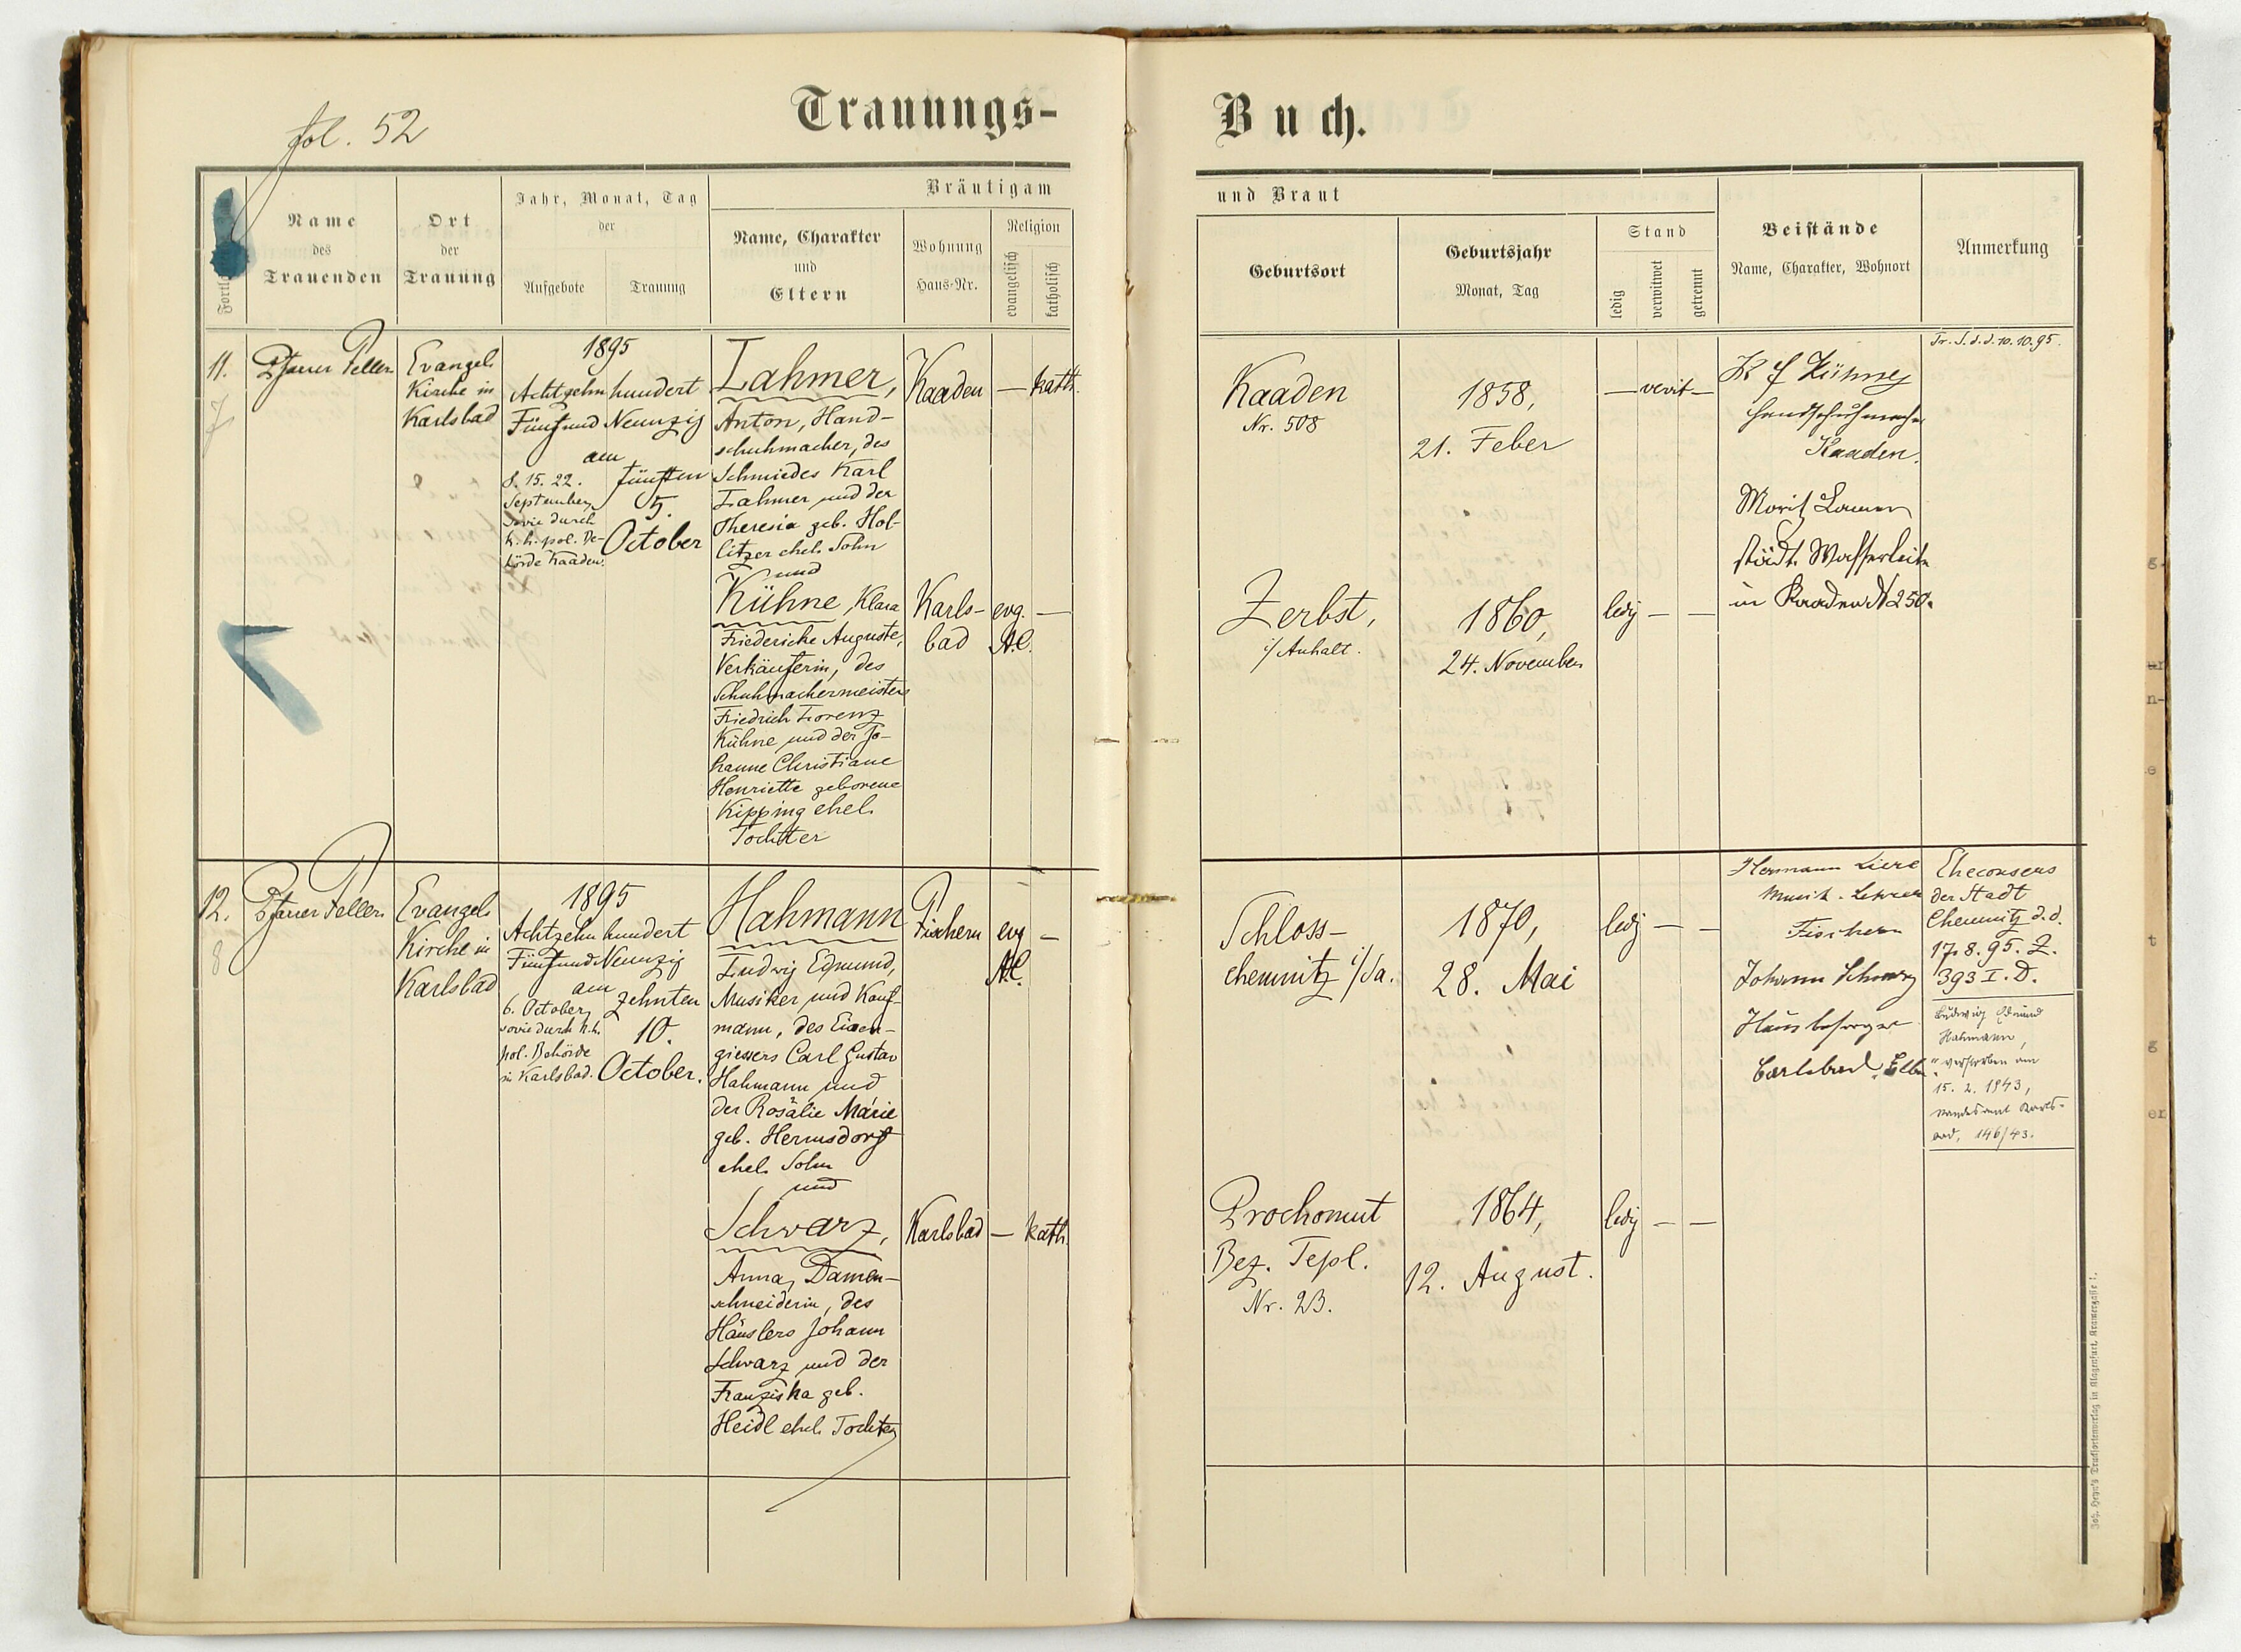 fol. 52
Trauungs-
Buch.
Name
des
Trauenden
Ort
der
Trauung
Jahr, Monat, Tag
der
Aufgebote
Trauung
Bräutigam
Name, Charakter
und
Eltern
Wohnung
Haus-Nr.
Religion
evangelisch
katholisch
und Braut
Geburtsort
Geburtsjahr
Monat, Tag
Stand
ledig
verwitwet
getrennt
Beistände
Name, Charakter, Wohnort
Anmerkung
11.
7
Pfarrer
Evangel.
Kirche in
Karlsbad
1895
Achtzehnhundert
Fünfund Neunzig
am
8. 15. 22.
September,
sowie durch
k. k. pol. Be-
hörde Kaaden.
fünften
5.
October
Lahmer,
Anton, Hand-
schuhmacher, des
Schmiedes Karl
Lahmer und der
Theresia geb. Hol-
litzer ehel. Sohn
und
Kühne, Klara
Friedericke Auguste,
Verkäuferin, des
Schuhmachermeisters
Friedrich Lorenz
Kühne und der Jo-
hanne Christiane
Henriette geborene
Kipping ehel.
Tochter
Kaaden
— kath.
Karls-
bad
evg. —
A.C.
Kaaden
Nr. 508
1858,
21. Feber
— verwit —
Zerbst,
i/ Anhalt.
1860,
24. November
ledig — —
Kühne
Handschuhmacher
Kaaden.
Moritz
städt.
in Kaaden N 250.
Tr. S. d. d. 10. 10. 95.
12.
8
Pfarrer
Evangel.
Kirche in
Karlsbad
1895
Achtzehnhundert
Fünfund Neunzig
am
6. October,
sowie durch k. k.
pol. Behörde
in Karlsbad.
zehnten
10.
October.
Hahmann
Ludwig Edmund,
Musiker und Kauf-
mann, des Eisen-
giessers Carl Gustav
Hahmann und
der Rosalie Marie
geb. Hermsdorf
ehel. Sohn
und
Schwarz,
Anna, Damen-
schneiderin, des
Häuslers Johann
Schwarz und der
Franziska geb.
Heidl ehel. Tochter
Fischern
evg —
A.C.
Karlsbad
— kath.
Schloss-
chemnitz i/Sa.
1870,
28. Mai
ledig — —
Prochomut
Bez. Tepl.
Nr. 23.
1864,
12. August.
ledig — —
Hermann
Musik - Lehrer
Fischern
Johann Schwarz
Hausbesorger
Carlsbad,
Eheconsens
der Stadt
Chemnitz d. d.
17. 8. 95. Z.
393 I. D.
Ludwig Edmund
Hahmann,
verstorben am
15. 2. 1943,
Standesamt Karls-
bad, 146/43.
Joh. Heyn's Drucksortenverlag in Klagenfurt, Kramergasse